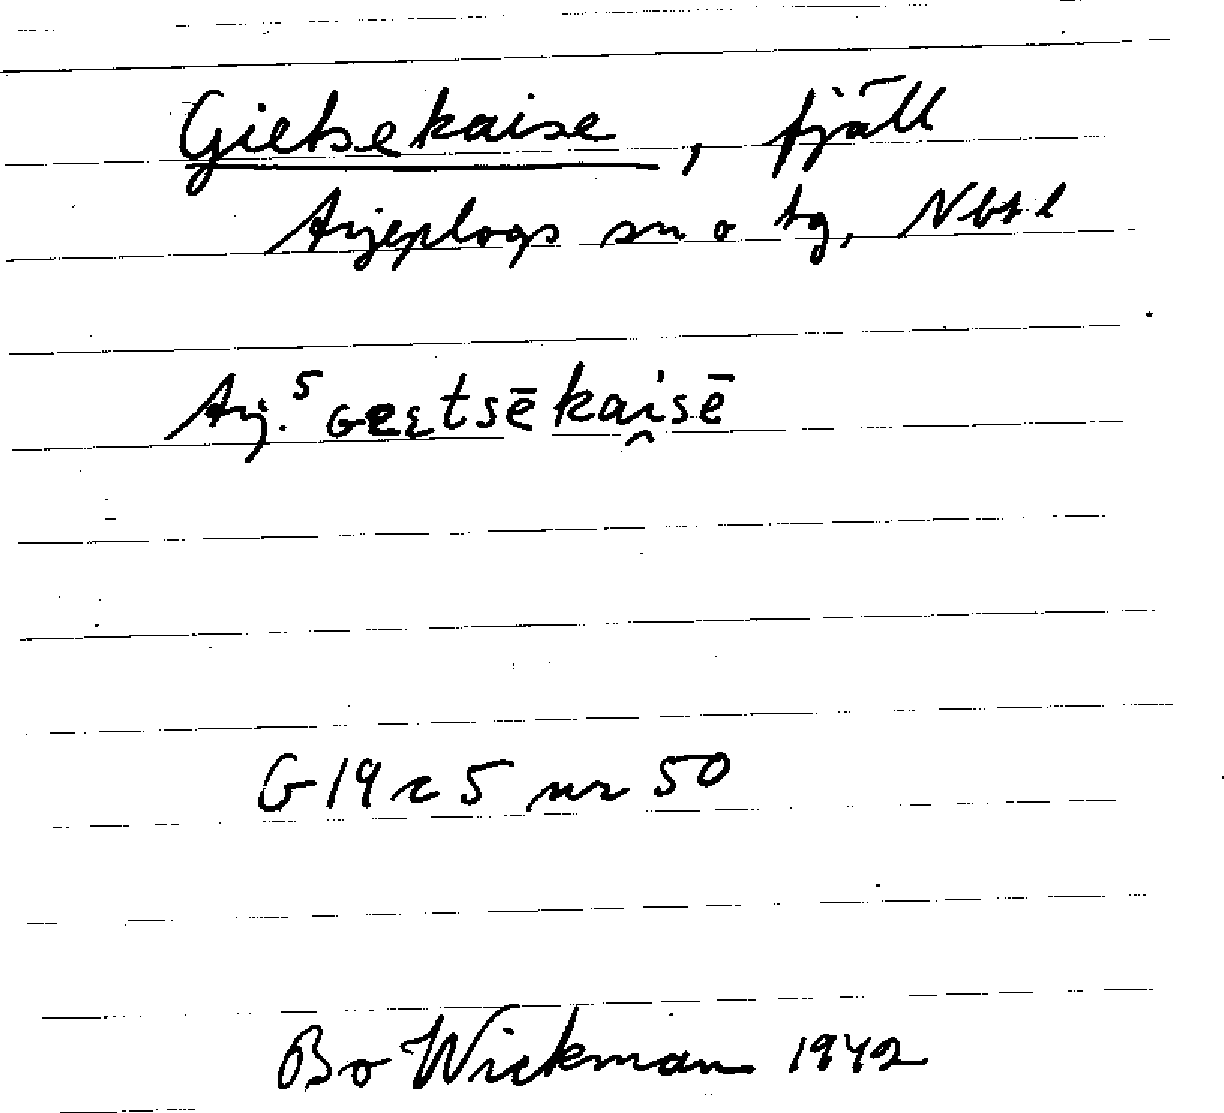 Gietsekaise, fjäll
Arjeplogs sn o tg, Nbt l
Arj.⁵ ɢeɛtsēkai̯sē
G 19 c 5 nr 50
Bo Wickman 1942